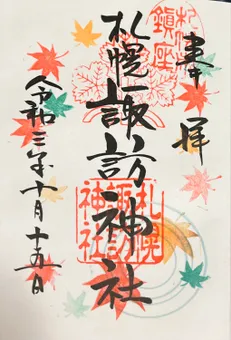 奉拝
札幌諏訪神社
令和三年十月十五日
札幌
諏訪
神社